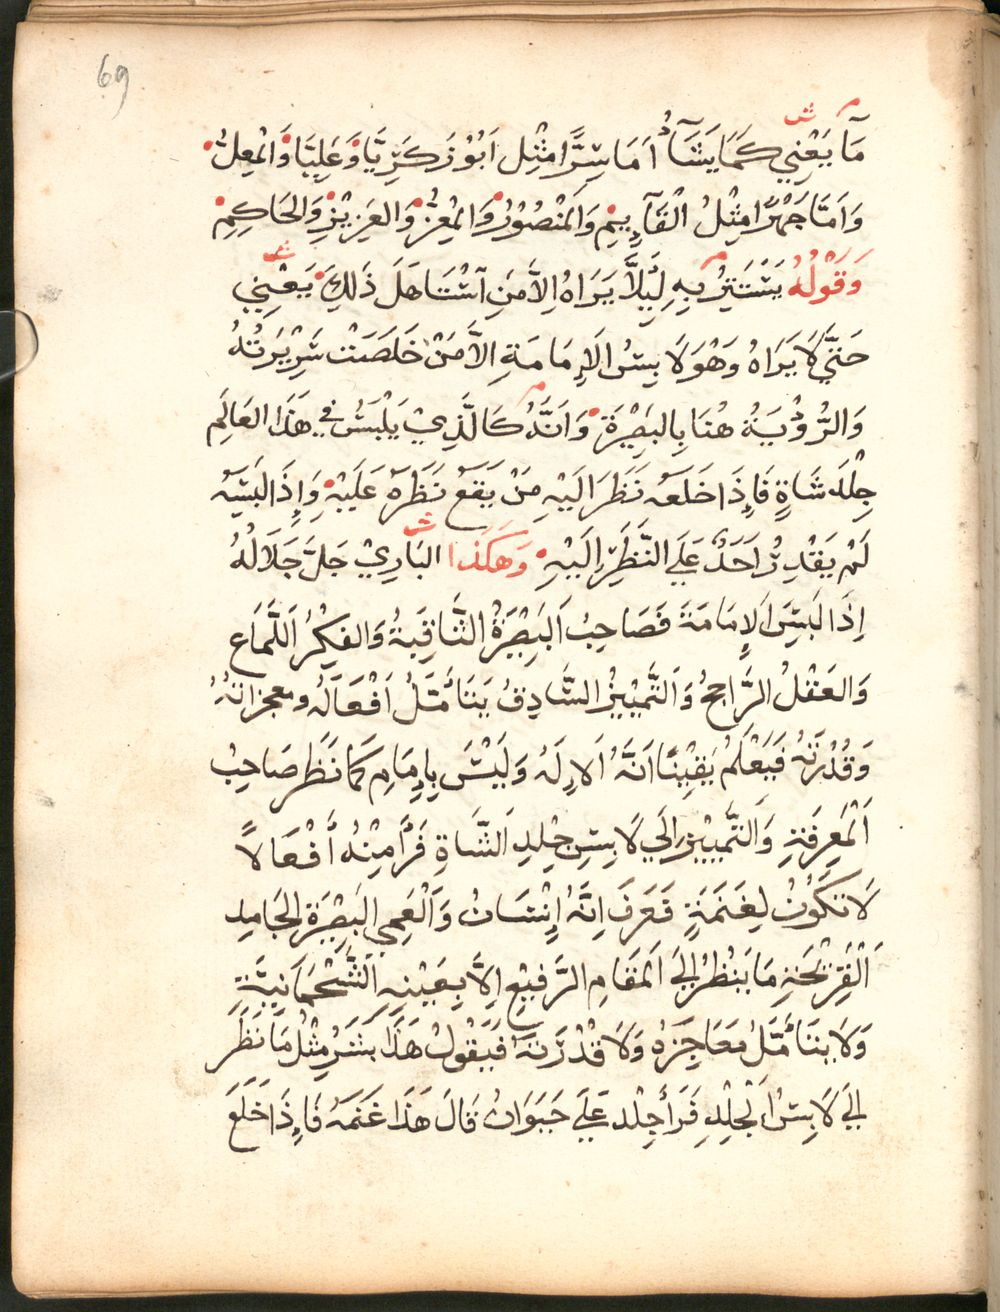 69
م ش
مَآ يَعْنِي كَمَا يَشَآءُ اَمَا سِرًّا مِثْل اَبُوْ زَكَرِيَّا وَعَلِيَّا وَالْمُعِلْ
وَاَمَّا جَهْرًا مِثْلُ الْقَآيِمِ وَالمَنْصُوْرْ وَالْمُعِزْ وَالعَزِيْزِ وَالحَاكِمِ
وَقَوْلُهُ يَسْتَتِرُ بِهِ لِيَلَّا يَرَاهُ اِلَّا مَنِ آسْتَاهَلَ ذَلِكَ يَعْنِي
حَتَّي لَا يَرَاهُ وَهْوَ لَابِسُ الاِمَامَةِ اِلَّا مَنْ خَلَصَتْ سَرِيْرَتُهُ
وَالرُّوْيَةُ هُنَا بِالبَصِيْرَةِ وَاَنَّهُ كَالَّذِيْ يَلْبَسُ فِي هَذَا العَالَمِ
جِلْدَ شَاةٍ فَاِذَا خَلَعَه نَظَرَ اِلَيْهِ مَنْ يَقَعْ نَظَرَهُ عَلَيْهِ وَاِذَا لَبِسَهُ
لَمْ يَقْدِرْ اَحَدٌ عَلَي النَّظَرِ اِلَيْهِ وَهَكَذَا البَارِيْ جَلَّ جَلَالُهُ
اِذَا لَبِسَ الاِمَامَةَ فَصَاحِبُ البَصِيْرَةُ الثَّاقِبَةُ وَالفِكِرُ اللَّمَاع
وَالعَقْلُ الرَّاجِحُ وَالتَّمْيِيْزْ الصَّادِقُ يَتَأَمَّلُ اَفْعَالَهُ ومعجزاتهُ
وَقُدْرَتَهُ فَيَعْلَمُ يَقِيْنًا اَنَّهُ الاِلَهُ وَلَيْسَ بِاِمَامِ كَمَا نَظَر صَاحِبُ
اَلْمَعِرِفَةِ وَالتَّمْيِيْزِ اِلَي لَابِسِ جِلْدِ الشَّاةِ فَرَأ مِنْهُ أَفْعَالاً
لَا تَكُوْنُ لِغَنَمَةٍ فَعَرَفَ اِنَّهُ إِنْسَانُ وَالْعَمِي البَصِيْرَةِ الجَامِدِ
اَلْقَرِيْحَةِ مَا يَنْظُرْ اِلَي المَقَامِ الرَّفِيْعِ اِلَّا بِعَيْنِهِ الشَّحْمَانِيَّةِ
وَلَا يَتَأَمَّلُ مُعَاجِزَهُ وَلَا قُدْرَتَهُ فَيَقُولُ هَذَا بَشَرْ مِثْلُ مَا نَظَر
اِلَي لَابِسْ الجِلْدِ فَرَأَ جِلْد عَلَي حَيَوَانُ قَالَ هَذَا غَنَمَه فَاِذَا خَلَعَ